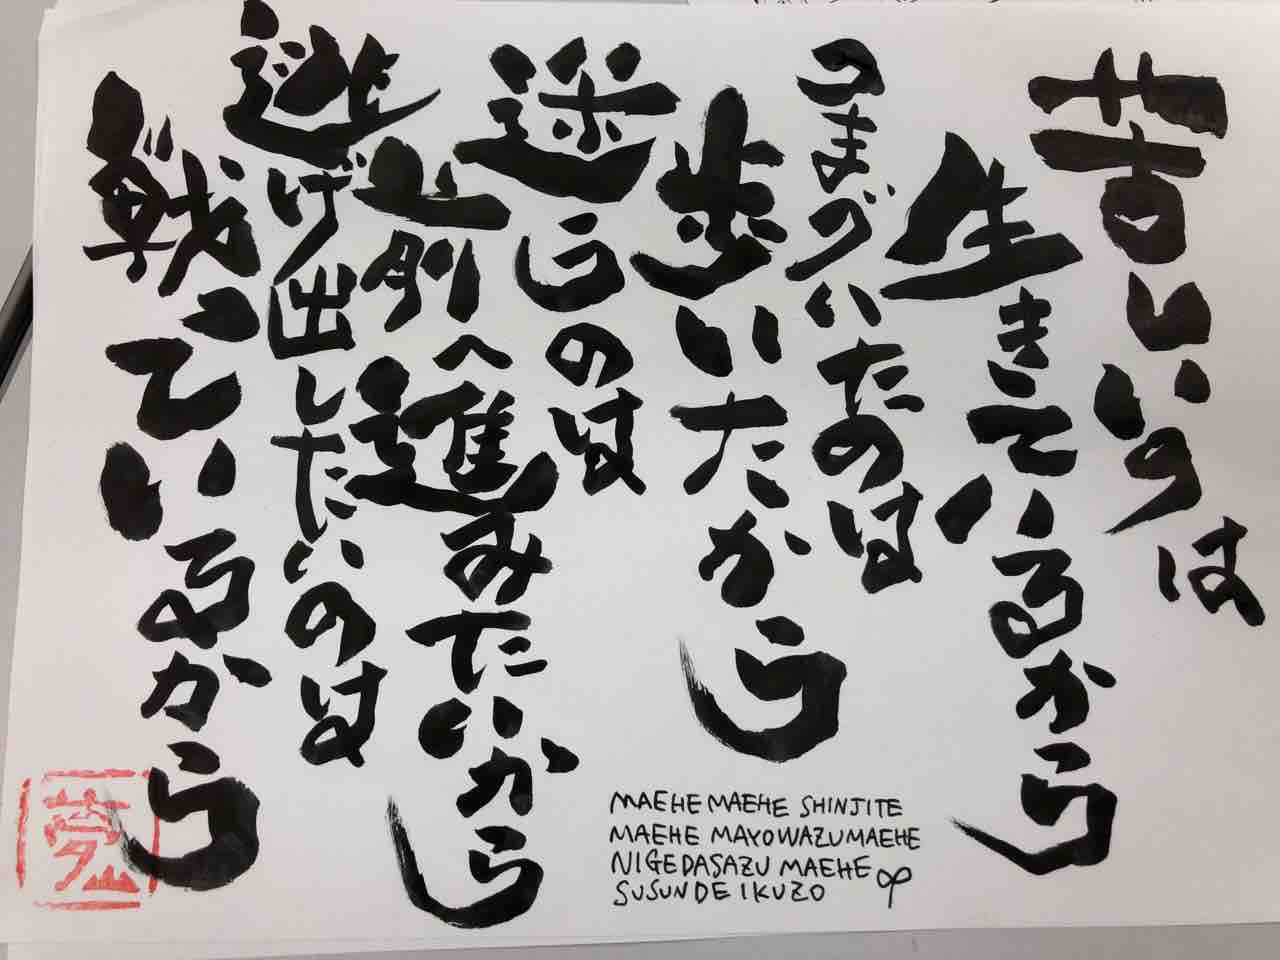 苦しいのは
生きているから
つまづいたのは
歩いたから
迷うのは
前へ進みたいから
逃げ出したいのは
戦っているから
MAEHE MAEHE SHINJITE
MAEHE MAYOWAZU MAEHE
NIGEDASAZU MAEHE
SUSUNDE IKUZO
夢